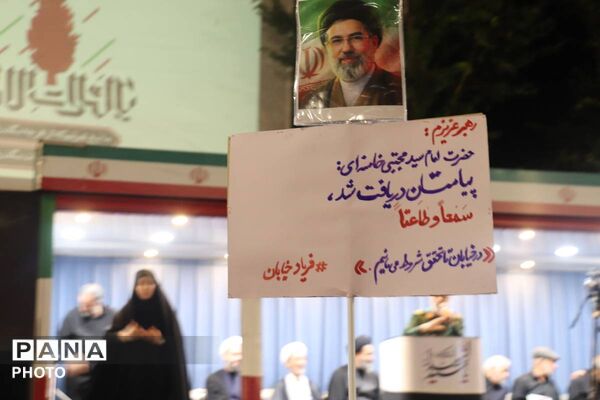 رهبر عزیزم:
حضرت امام سید مجتبی خامنه‌ای:
پیامتان دریافت شد،
سَمعاً و طاعتاً
«در خیابان تا تحقق شروط می‌مانیم.»
#فریاد_خیابان
PANA
PHOTO